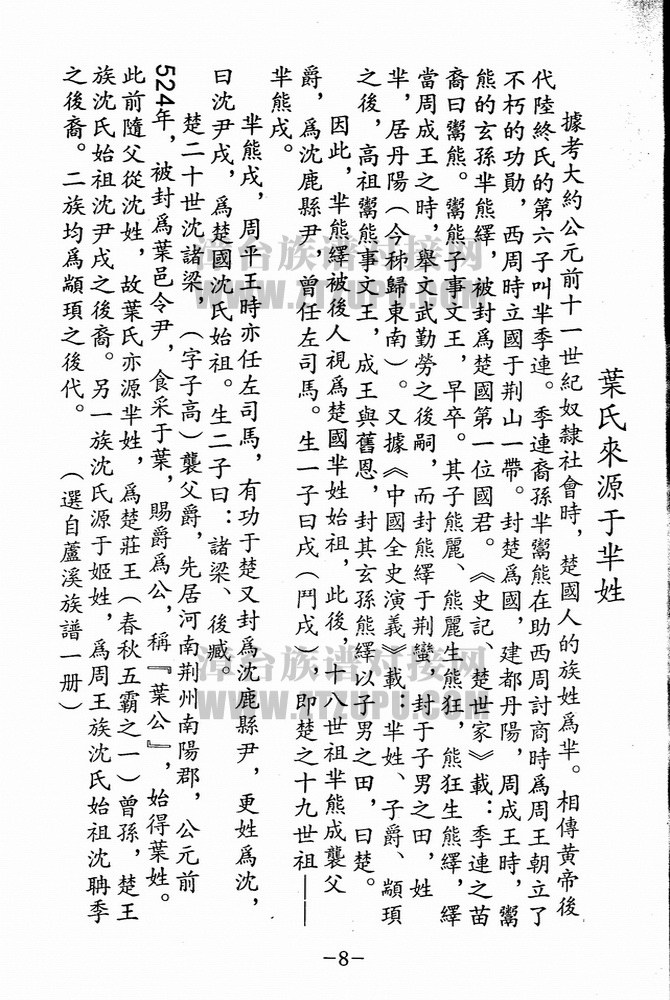 葉氏來源于羋姓
據考大約公元前十一世紀奴隸社會時，楚國人的族姓爲羋。相傳黄帝後
代陸終氏的第六子叫羋季連。季連裔孫羋鬻熊在助西周討商時爲周王朝立了
不朽的功勛，西周時立國于荆山一帶。封楚爲國，建都丹陽，周成王時，鬻
熊的玄孫羋熊繹，被封爲楚國第一位國君。《史記、楚世家》載：季連之苗
裔曰鬻熊。鬻熊子事文王，早卒。其子熊麗、熊麗生熊狂，熊狂生熊繹，繹
當周成王之時，舉文武勤勞之後嗣，而封熊繹于荆蠻，封于子男之田，姓
羋，居丹陽（今秭歸東南）。又據《中國全史演義》載：羋姓、子爵、顓頊
之後，高祖鬻熊事文王，成王與舊恩，封其玄孫熊繹以子男之田，曰楚。
因此，羋熊繹被後人視爲楚國羋姓始祖，此後，十八世祖羋熊成襲父
爵，爲沈鹿縣尹，曾任左司馬。生一子曰戌（鬥戌），即楚之十九世祖——
羋熊戌。
羋熊戌，周平王時亦任左司馬，有功于楚又封爲沈鹿縣尹，更姓爲沈，
曰沈尹戌，爲楚國沈氏始祖。生二子曰：諸梁、後臧。
楚二十世沈諸梁，（字子高）襲父爵，先居河南荆州南陽郡，公元前
524年，被封爲葉邑令尹，食采于葉，賜爵爲公，稱『葉公』，始得葉姓。
此前隨父從沈姓，故葉氏亦源羋姓，爲楚莊王（春秋五霸之一）曾孫，楚王
族沈氏始祖沈尹戌之後裔。另一族沈氏源于姬姓，爲周王族沈氏始祖沈聃季
之後裔。二族均爲顓頊之後代。
（選自蘆溪族譜一册）
-8-
漳台族谱对接网
WWW.ZTZUPU.COM
漳台族谱对接网
WWW.ZTZUPU.COM